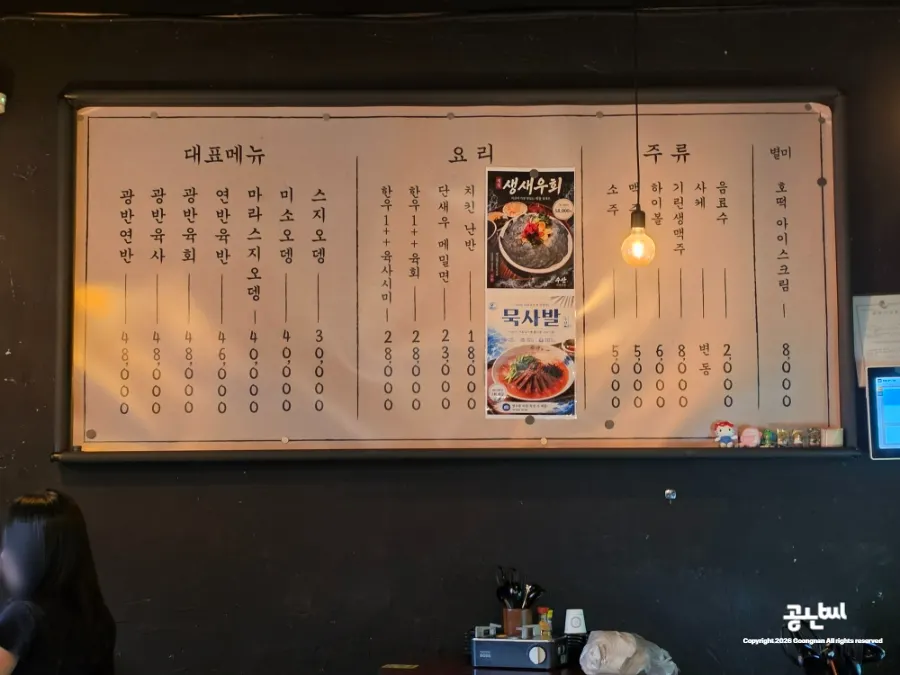 대표메뉴
광반연반 48,000
광반육사 48,000
광반육회 48,000
연반육반 46,000
마라스지오뎅 40,000
미소오뎅 40,000
스지오뎅 30,000
요리
한우1++육사시미 28,000
한우1++육회 28,000
단새우 메밀면 23,000
치킨 난반 18,000
생새우회
묵사발
주류
소주 5,000
맥주 5,000
하이볼 6,000
기린생맥주 8,000
사케 변동
음료수 2,000
별미
호떡 아이스크림 8,000
공난씨
Copyright.2026 Goongnan All rights reserved